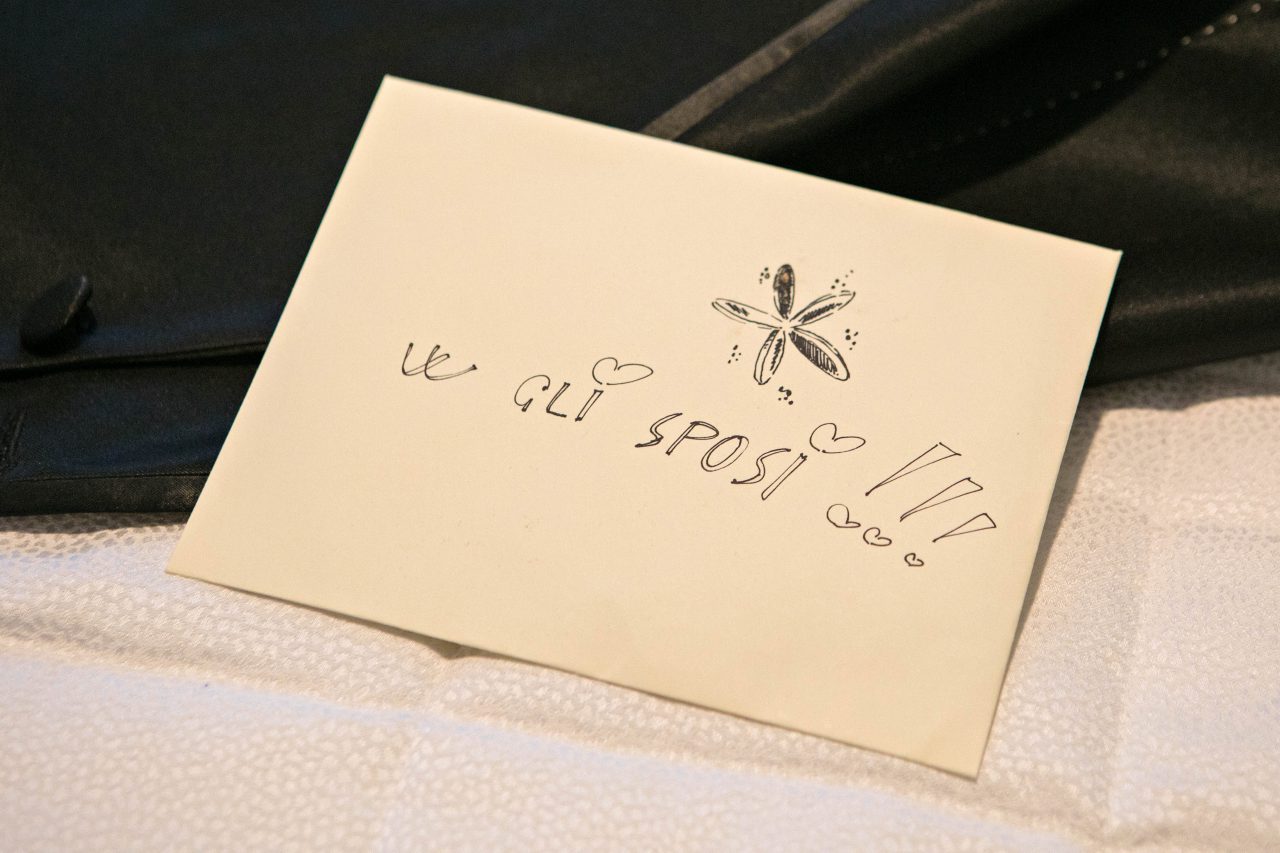 W GLI SPOSI !!!